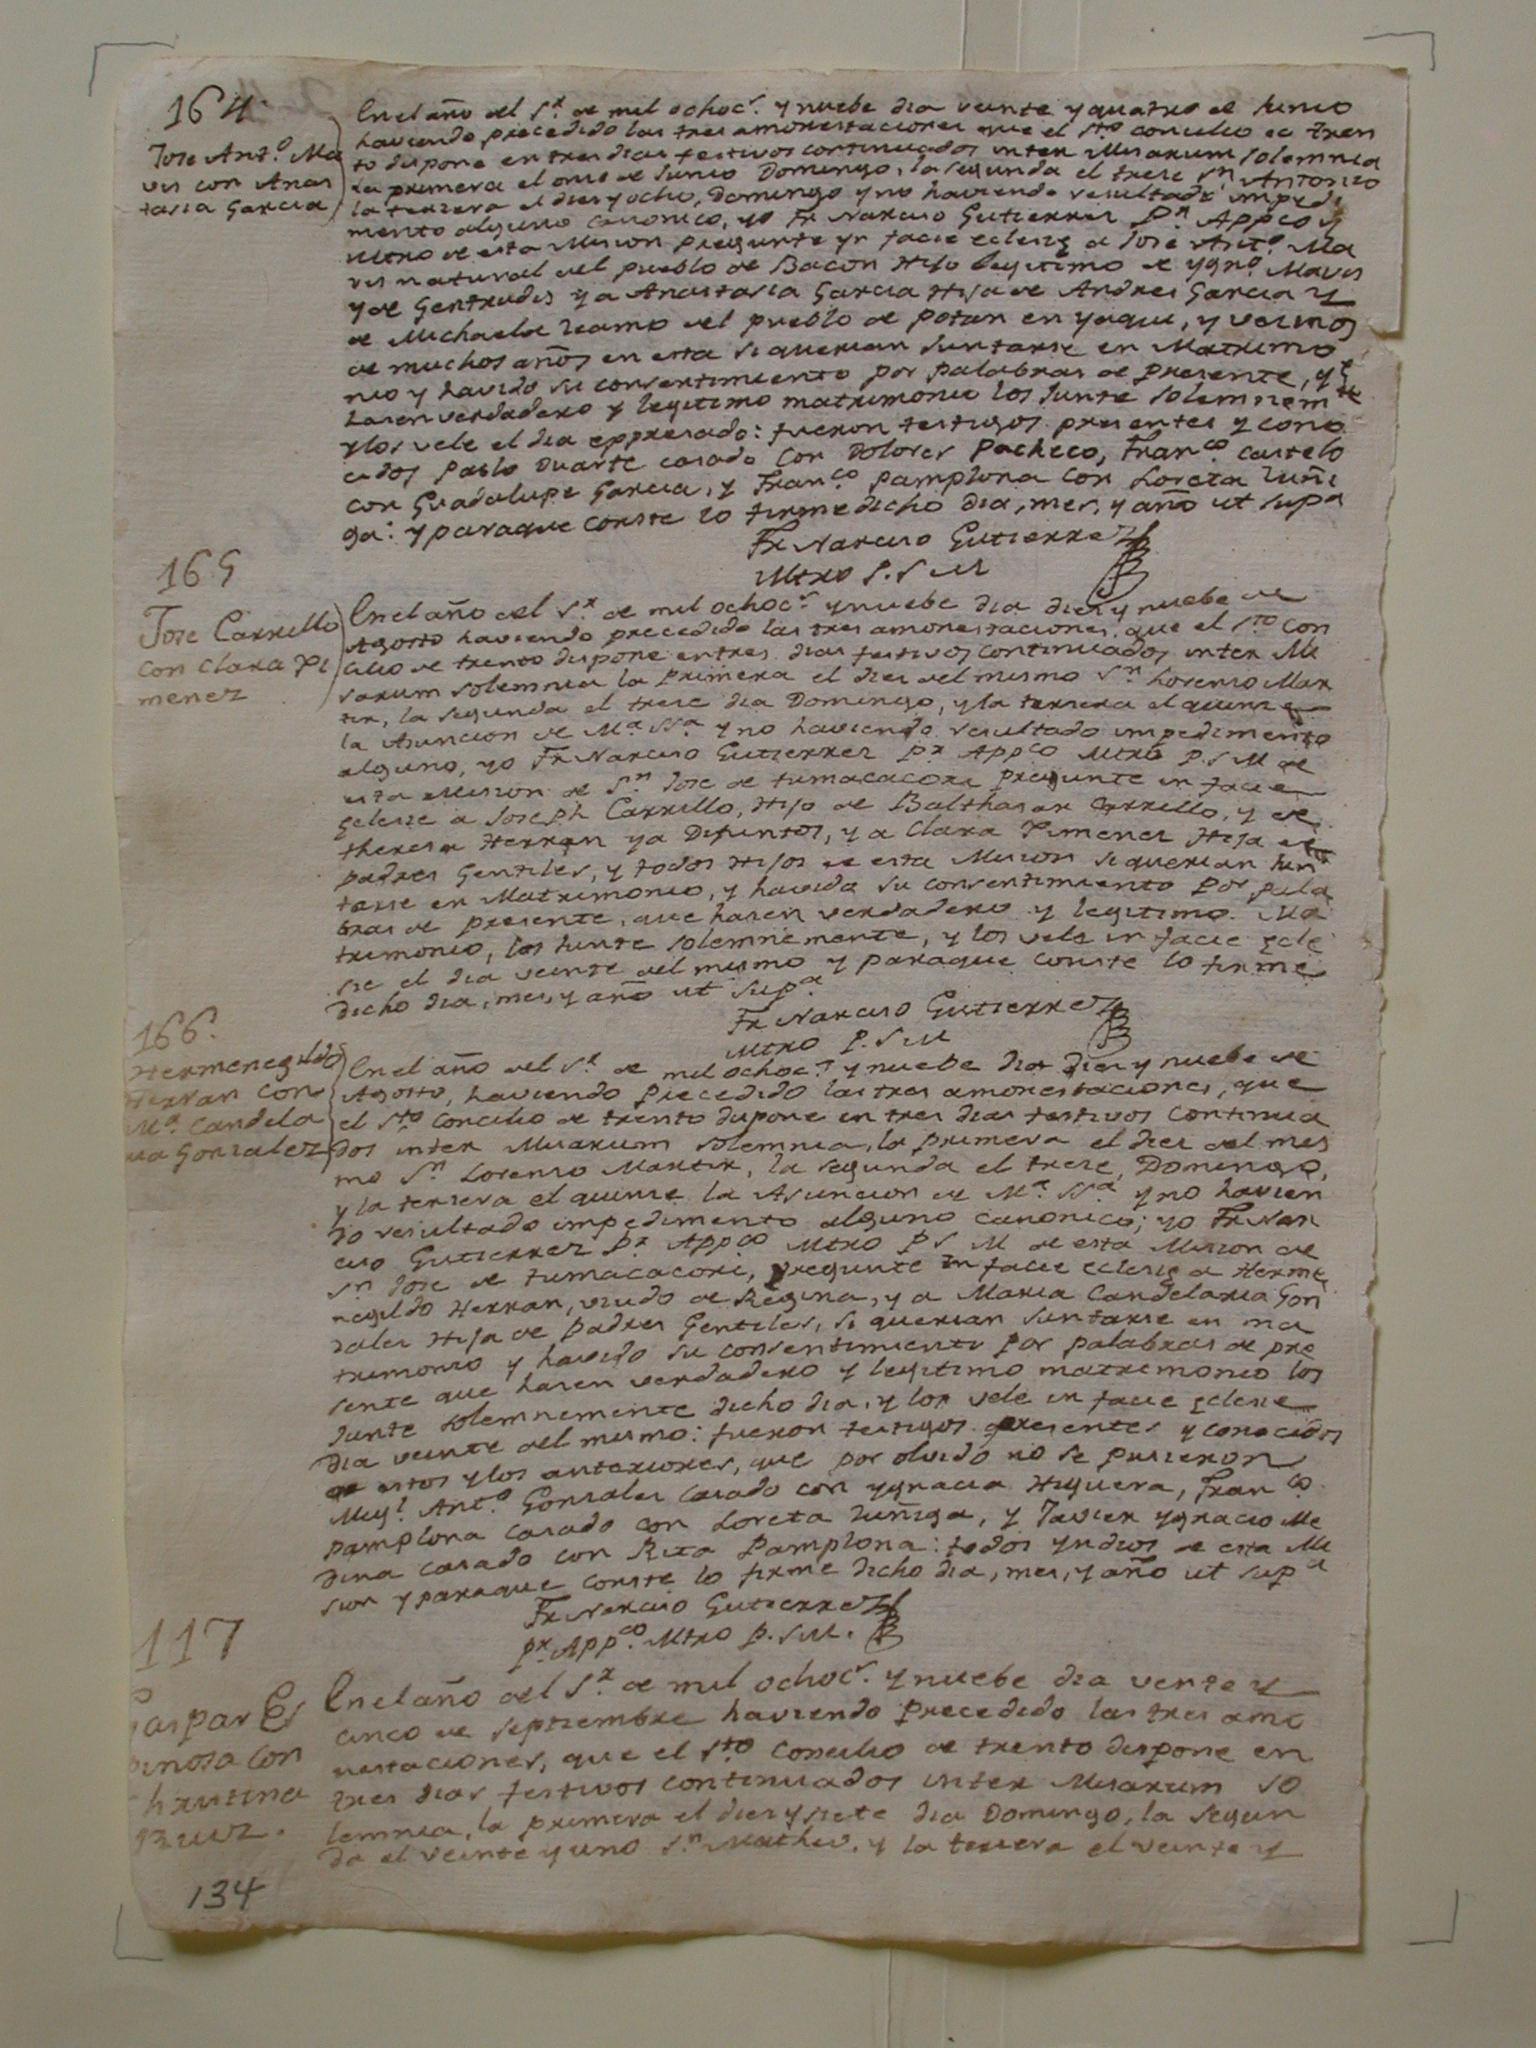 164
Jose Ant.º Ma
vis con Anas
tasia Garcia
En el año del S.r de mil ochoc.s y nuebe dia veinte y quatro de Junio
haviendo precedido las tres amonestaciones que el S.to concilio de Tren
to dispone en tres dias festivos continuados inter Misarum solemnia
la primera el onse de Junio Domingo, la segunda el trese S.n Antonio
la tersera el dies y ocho, Domingo y no haviendo resultado impedi
mento alguno canonico, yo Fr Narciso Gutierres P.r Appco y
Mtro de esta Mision pregunte yn facie eclesie a Jose Ant.º Ma
vis natural del pueblo de Bacon Hijo legitimo de ygn.º Mavis
y de Gertrudis y a Anastasia Garcia Hija de Andres Garcia y
de Michaela ocamo del pueblo de Potan en yaqui, y vecinos
de muchos años en esta si querian Juntarse en Matrimo
nio y havido su consentimiento por palabras de presente, q.e
hasen verdadero y legitimo matrimonio los Junte solemnem.te
y los vele el dia eppresado: fueron testigos presentes y cono
cidos Pablo Duarte casado con Dolores Pacheco, Fran.co castelo
con Guadalupe Garcia, y Fran.co Pamplona con Loreta Zuñi
ga: y paraque conste lo firme dicho dia, mes, y año ut sup.a
Fr Narciso Gutierrez
Mtro P. S M
165
Jose Carrillo
con Clara Xi
menez
En el año del S.r de mil ochoc.s y nuebe dia dies y nuebe de
Agosto haviendo precedido las tres amonestaciones, que el S.to Con
cilio de trento dispone en tres dias festivos continuados inter Mi
sarum solemnia la primera el dies del mismo S.n Lorenso Mar
tir, la segunda el trese dia Domingo, y la tersera el quinse
la Asuncion de M.a SS.a y no haviendo resultado impedimento
alguno, yo Fr Narciso Gutierrez P.r Appco Mtro P. S M de
esta Mision de S.n Jose de tumacacori pregunte in facie
eclesie a Joseph Carrillo, Hijo de Balthasar Carrillo, y de
theresa Herran ya Difuntos, y a Clara Ximenes Hija de
padres Gentiles, y todos Hijos de esta Mision si querian Jun
tarse en Matrimonio, y havida su consentimiento por pala
bras de presente, que hasen verdadero y legitimo Ma
trimonio, los Junte solemnemente, y los vele in facie ecle
sie el dia veinte del mismo y paraque conste lo firme
dicho dia, mes, y año ut sup.a
Fr Narciso Gutierrez
Mtro P. S M
166.
Hermenegildo
Herran con
M.a Candela
ria Gonzalez
En el año del S.r de mil ochoc.s y nuebe dia dies y nuebe de
Agosto, haviendo precedido las tres amonestaciones, que
el S.to Concilio de trento dispone en tres dias festivos continua
dos inter Misarum solemnia, la primera el dies del mes
mo S.n Lorenso Martir, la segunda el trese, Domingo,
y la tersera el quinse la Asuncion de M.a SS.a y no havien
do resultado impedimento alguno canonico; yo Fr Nar
ciso Gutierrez P.r App.co Mtro P S M de esta Mision de
S.n Jose de tumacacori, pregunte in facie eclesie a Herme
negildo Herran, viudo de Regina, y a Maria Candelaria Gon
zales Hija de padres Gentiles, si querian Juntarse en ma
trimonio y havido su consentimiento por palabras de pre
sente que hasen verdadero y legitimo matrimonio los
Junte solemnemente dicho dia, y los vele in facie eclesie
dia veinte del mismo: fueron testigos presentes y conocidos
de estos y los anteriores, que por olvido no se pusieron
Mig.l Ant.º Gonsales casado con ygnacia Higuera, Fran.co
Pamplona casado con Loreta Zuñiga, y Javier ygnacio Me
dina casado con Rita Pamplona: todos yndios de esta Mi
sion y paraque conste lo firme dicho dia, mes, y año ut sup.a
Fr Narciso Gutierrez
P.r App.co Mtro P. S M.
117
Gaspar Es
pinosa con
Christina
En el año del S.r de mil ochoc.s y nuebe dia vente y
cinco de septiembre haviendo precedido las tres amo
nestaciones, que el S.to Concilio de trento dispone en
tres dias festivos continuados inter Misarum so
lemnia, la primera el dies y siete dia Domingo, la segun
da el veinte y uno S.n Matheo, y la tersera el veinte y
134